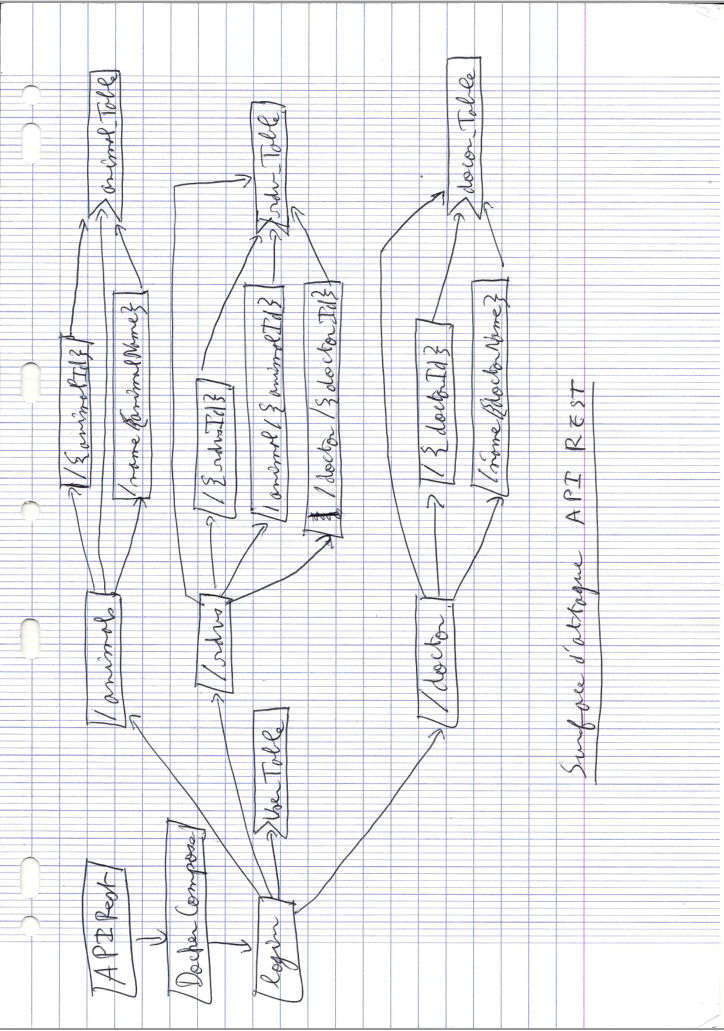 API Rest
Docker Compose
login
User Table
/animals
/{animalId}
/name/{animalName}
animal_Table
/rdvs
/{rdvId}
/animal/{animalId}
/doctor/{doctorId}
rdv_Table
/doctor
/{doctorId}
/name/{doctorName}
docor_Table
Surface d'attaque API REST